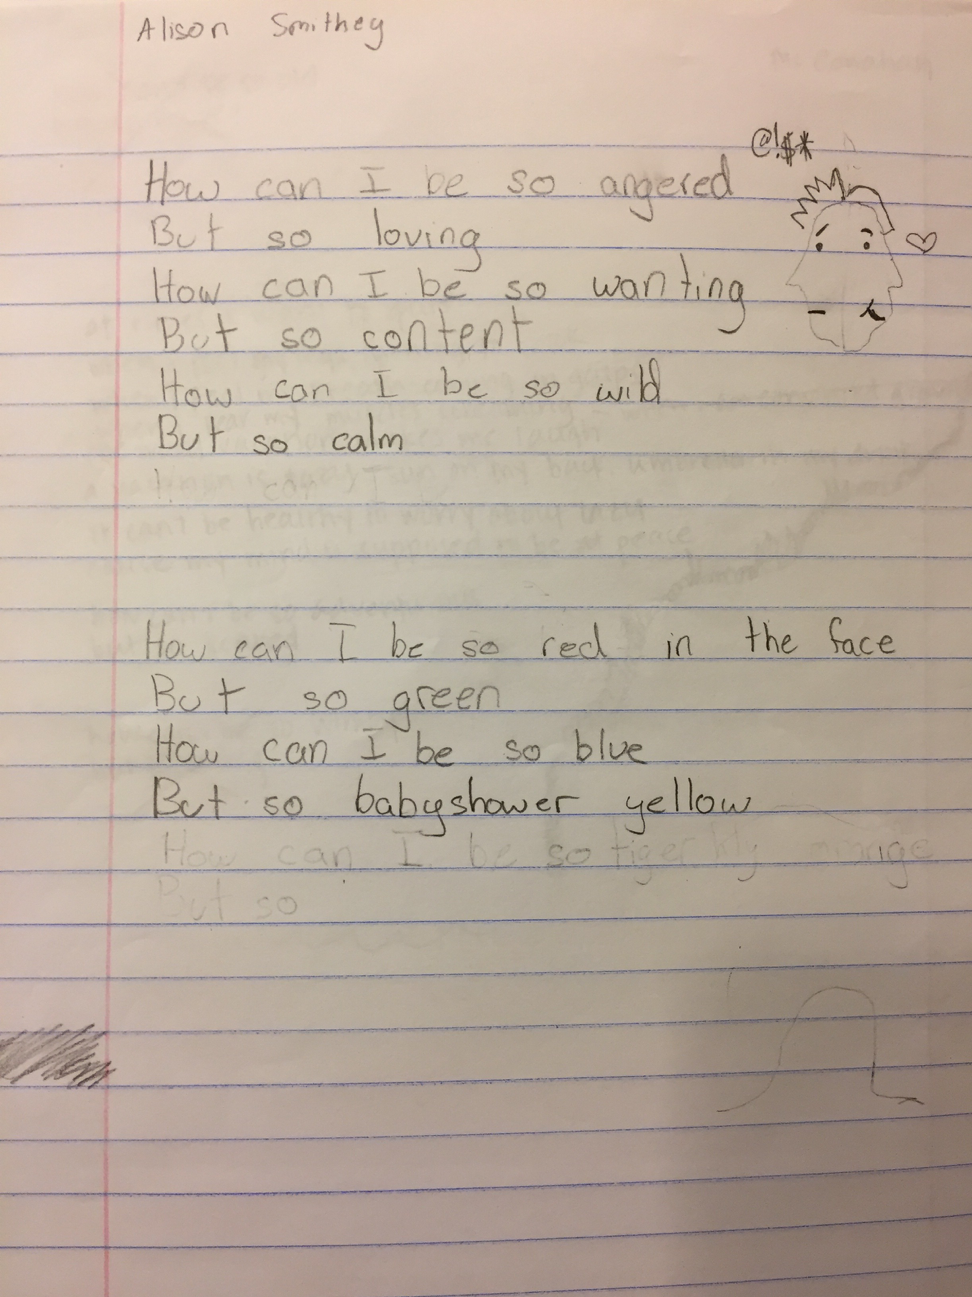 Alison Smithey
@!$*
How can I be so angered
But so loving
How can I be so wanting
But so content
How can I be so wild
But so calm
How can I be so red in the face
But so green
How can I be so blue
But so babyshower yellow
How can I be so tiger lily orange
But so